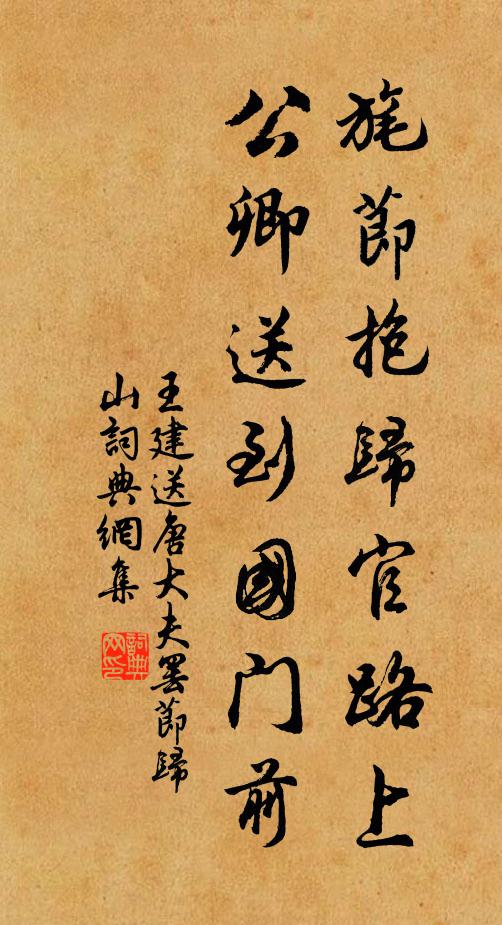 旄節抱歸官路上
公卿送到國門前
王建送唐大夫罷節歸
山詞典網集
詞典网印